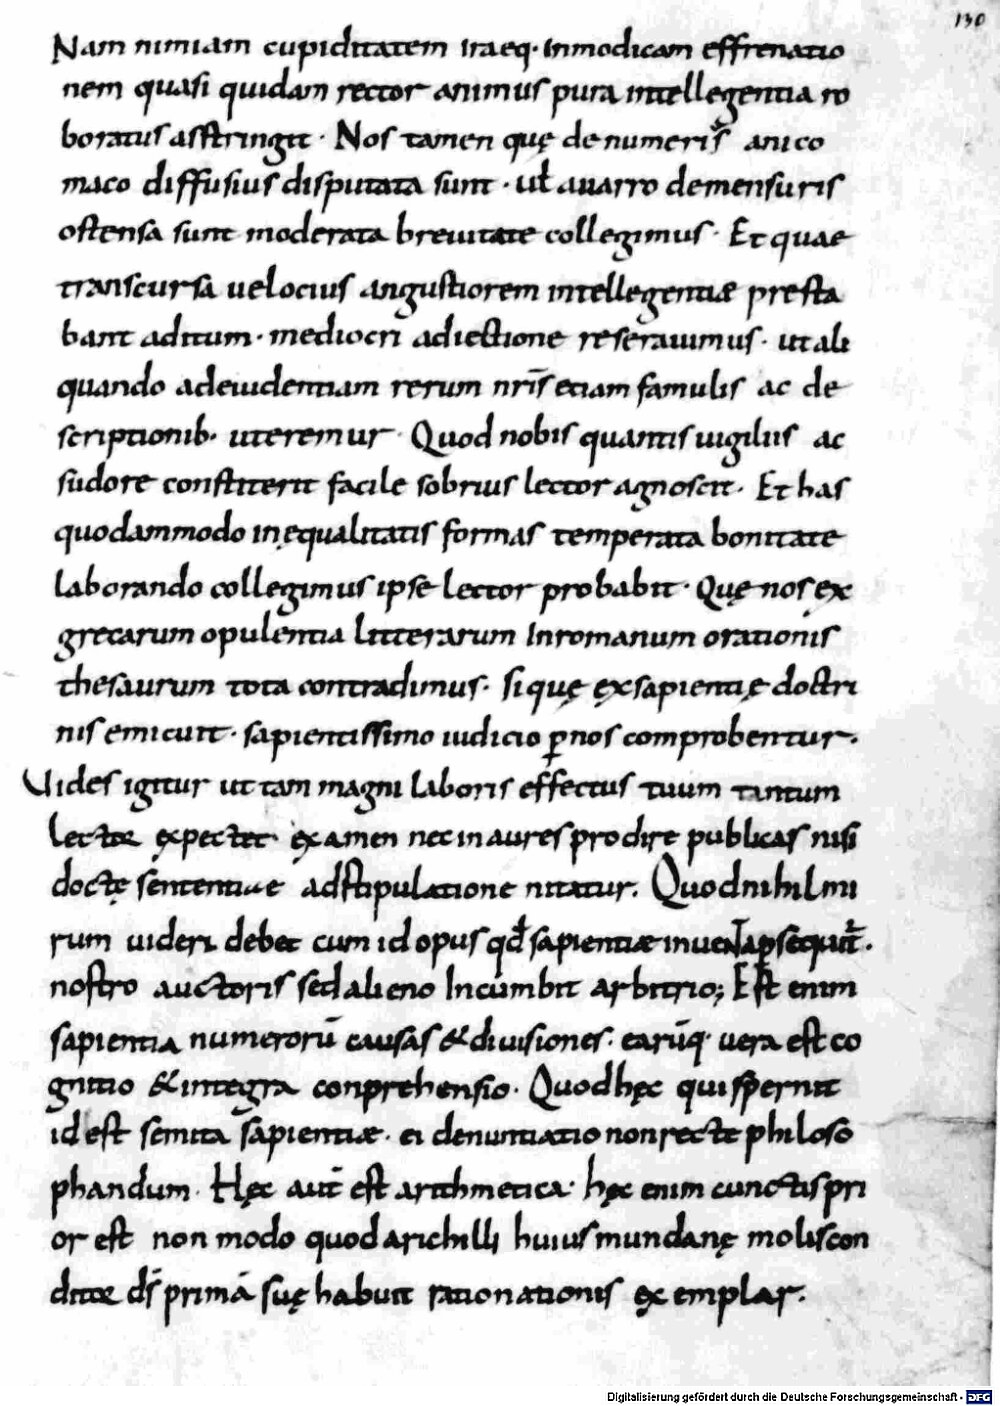 130
Nam nimiam cupiditatem iraeq· inmodicam effrenatio
nem quasi quidam rector animus pura intellegentia ro
boratus asstringit · Nos tamen quę de numeris̃ a nico
maco diffusius disputata sunt · ut̃ auarro demensuris
ostensa sunt moderata breuitate collegimus · Et quae
transcursa uelocius angustiorem intellegentiæ presta
bant aditum · mediocri adiectione reserauimus · ut ali
quando adeuidentiam rerum nrı̃s etiam famulis ac de
scriptionib· uteremur · Quod nobis quantis uigiliis ac
sudore constiterit facile sobrius lector agnoscit · Et has
quodammodo inęqualitatis formas temperata bonitate
laborando collegimus ipse lector probabit · Quę nos ex
grecarum opulentia litterarum Inromanum orationis
thesaurum tota contradimus · si quę ex sapientię doctri
nis emicuit · sapientissimo iudicio ꝑ nos comprobentur ·
Uides igitur ut tam magni laboris effectus tuum tantum
lectoræ expectet · examen nec in aures prodire publicas nisi
doctę sententiae adstipulatione nitatur. Quod nihil mi
rum uideri debet cum id opus qd̃ sapientiæ inuenta ꝑsequit̃ ·
nostro auctoris sed alieno Incumbit arbitrio; Est enim
sapientia numerorũ causas & diuisiones · earũq· uera est co
gnitio & integra conprehensio · Quod hęc qui spernit
id est semita sapientiæ · ei denuntiatio non recte philoso
phandum · Hęc aut̃ est arithmetica · hęc enim cunctis pri
or est non modo quod arichilli huius mundanę molis con
ditor ds̃ primã suę habuit rationationis exemplar.
Digitalisierung gefördert durch die Deutsche Forschungsgemeinschaft - DFG